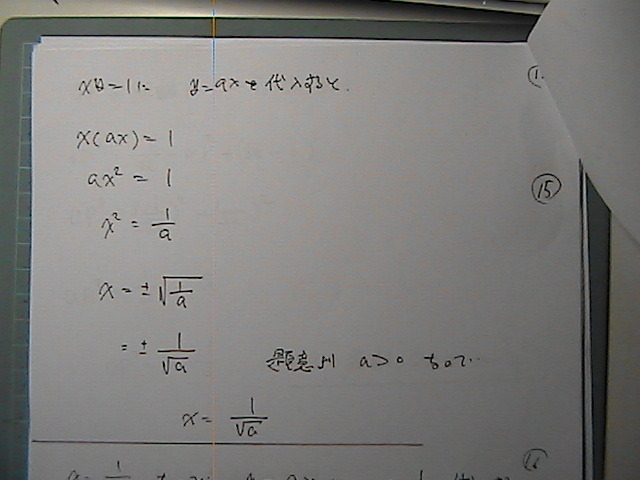 xy=1に y=axを代入すると.
x(ax) = 1
ax² = 1
⑮
x² = 1/a
x = ±√(1/a)
= ± 1/√a 題意より a>0 なので…
x = 1/√a